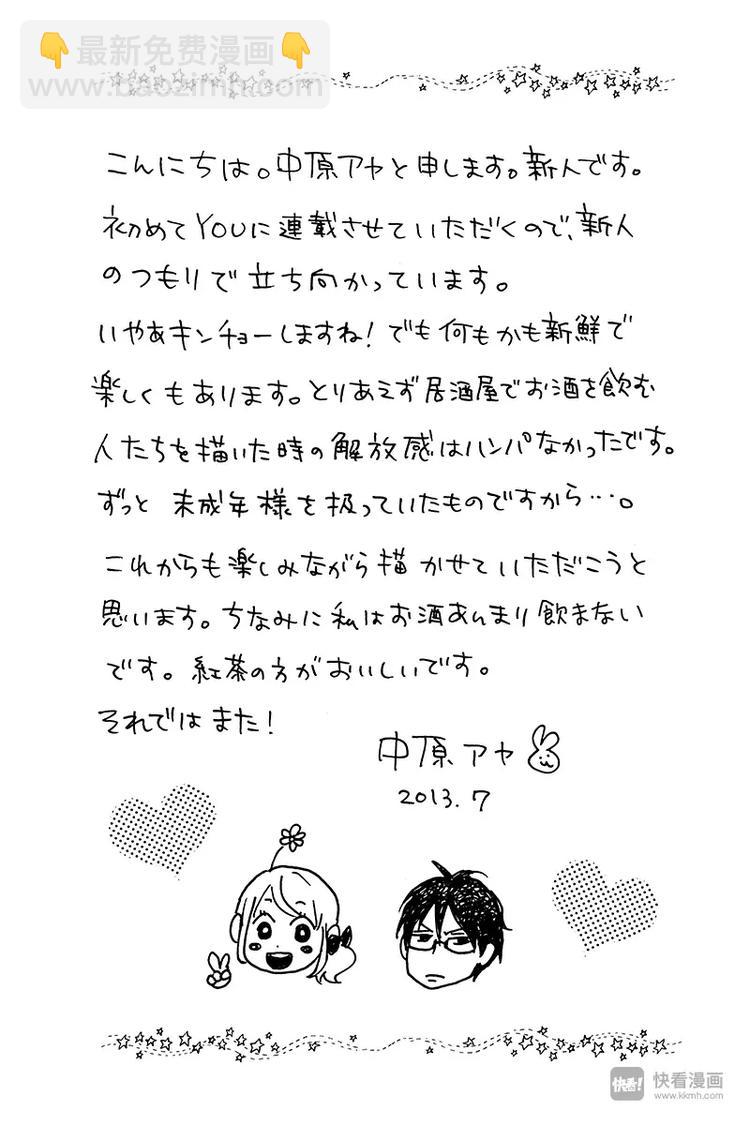 👇最新免费漫画👇
www.baozimh.com
こんにちは。中原アヤと申します。新人です。
初めてYOUに連載させていただくので、新人
のつもりで立ち向かっています。
いやあキンチョーしますね!でも何もかも新鮮で
楽しくもあります。とりあえず居酒屋でお酒を飲む
人たちを描いた時の解放感はハンパなかったです。
ずっと未成年様を扱っていたものですから…。
これからも楽しみながら描かせていただこうと
思います。ちなみに私はお酒あんまり飲まない
です。紅茶の方がおいしいです。
それではまた!
中原アヤ
2013.7
快看!
快看漫画
www.kkmh.com